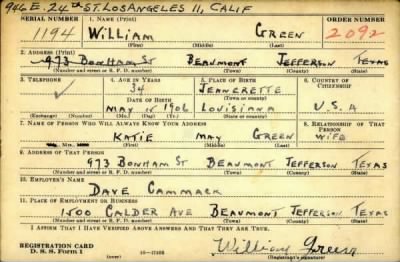 946 E. 24th ST. LOS ANGELES 11, CALIF
SERIAL NUMBER 1. NAME (Print) ORDER NUMBER
1194 WILLIAM GREEN 2092
(First) (Middle) (Last)
2. ADDRESS (Print)
973 BONHAM ST BEAUMONT JEFFERSON TEXAS
(Number and street or R. F. D. number) (Town) (County) (State)
3. TELEPHONE 4. AGE IN YEARS 5. PLACE OF BIRTH 6. COUNTRY OF CITIZENSHIP
34 JEANERETTE
DATE OF BIRTH (Town or county)
MAY 15 1906 LOUISIANA U.S.A
(Exchange) (Number) (Mo.) (Day) (Yr.) (State or country)
7. NAME OF PERSON WHO WILL ALWAYS KNOW YOUR ADDRESS 8. RELATIONSHIP OF THAT PERSON
KATIE MAY GREEN WIFE
(Mr., Mrs., Miss) (First) (Middle) (Last)
9. ADDRESS OF THAT PERSON
973 BONHAM ST BEAUMONT JEFFERSON TEXAS
(Number and street or R. F. D. number) (Town) (County) (State)
10. EMPLOYER'S NAME
DAVE CAMMACK
11. PLACE OF EMPLOYMENT OR BUSINESS
1500 CALDER AVE BEAUMONT JEFFERSON TEXAS
(Number and street or R. F. D. number) (Town) (County) (State)
I AFFIRM THAT I HAVE VERIFIED ABOVE ANSWERS AND THAT THEY ARE TRUE.
REGISTRATION CARD
D. S. S. Form 1 William Green
(Registrant's signature)